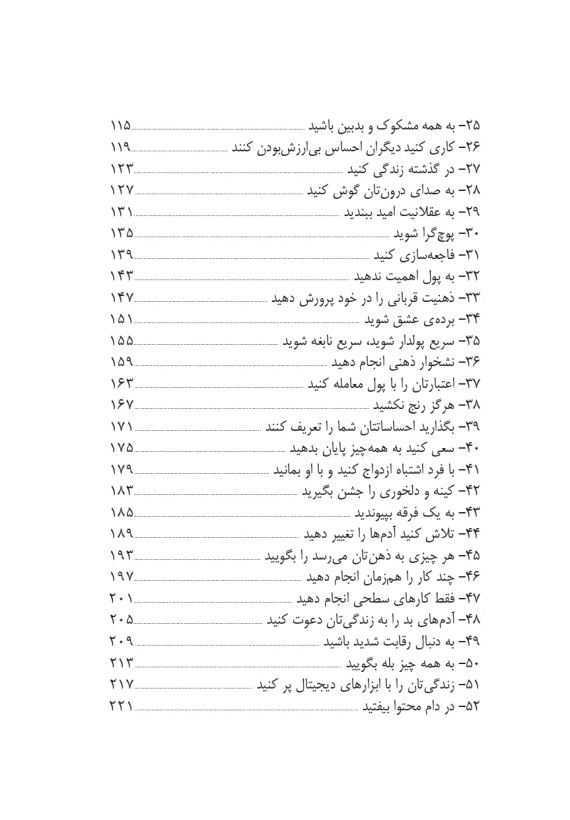 ۲۵- به همه مشکوک و بدبین باشید ........ ۱۱۵
۲۶- کاری کنید دیگران احساس بی‌ارزش‌بودن کنند ........ ۱۱۹
۲۷- در گذشته زندگی کنید ........ ۱۲۳
۲۸- به صدای درون‌تان گوش کنید ........ ۱۲۷
۲۹- به عقلانیت امید ببندید ........ ۱۳۱
۳۰- پوچ‌گرا شوید ........ ۱۳۵
۳۱- فاجعه‌سازی کنید ........ ۱۳۹
۳۲- به پول اهمیت ندهید ........ ۱۴۳
۳۳- ذهنیت قربانی را در خود پرورش دهید ........ ۱۴۷
۳۴- برده‌ی عشق شوید ........ ۱۵۱
۳۵- سریع پولدار شوید، سریع نابغه شوید ........ ۱۵۵
۳۶- نشخوار ذهنی انجام دهید ........ ۱۵۹
۳۷- اعتبارتان را با پول معامله کنید ........ ۱۶۳
۳۸- هرگز رنج نکشید ........ ۱۶۷
۳۹- بگذارید احساساتتان شما را تعریف کنند ........ ۱۷۱
۴۰- سعی کنید به همه‌چیز پایان بدهید ........ ۱۷۵
۴۱- با فرد اشتباه ازدواج کنید و با او بمانید ........ ۱۷۹
۴۲- کینه و دلخوری را جشن بگیرید ........ ۱۸۳
۴۳- به یک فرقه بپیوندید ........ ۱۸۵
۴۴- تلاش کنید آدم‌ها را تغییر دهید ........ ۱۸۹
۴۵- هر چیزی به ذهن‌تان می‌رسد را بگویید ........ ۱۹۳
۴۶- چند کار را هم‌زمان انجام دهید ........ ۱۹۷
۴۷- فقط کارهای سطحی انجام دهید ........ ۲۰۱
۴۸- آدم‌های بد را به زندگی‌تان دعوت کنید ........ ۲۰۵
۴۹- به دنبال رقابت شدید باشید ........ ۲۰۹
۵۰- به همه چیز بله بگویید ........ ۲۱۳
۵۱- زندگی‌تان را با ابزارهای دیجیتال پر کنید ........ ۲۱۷
۵۲- در دام محتوا بیفتید ........ ۲۲۱